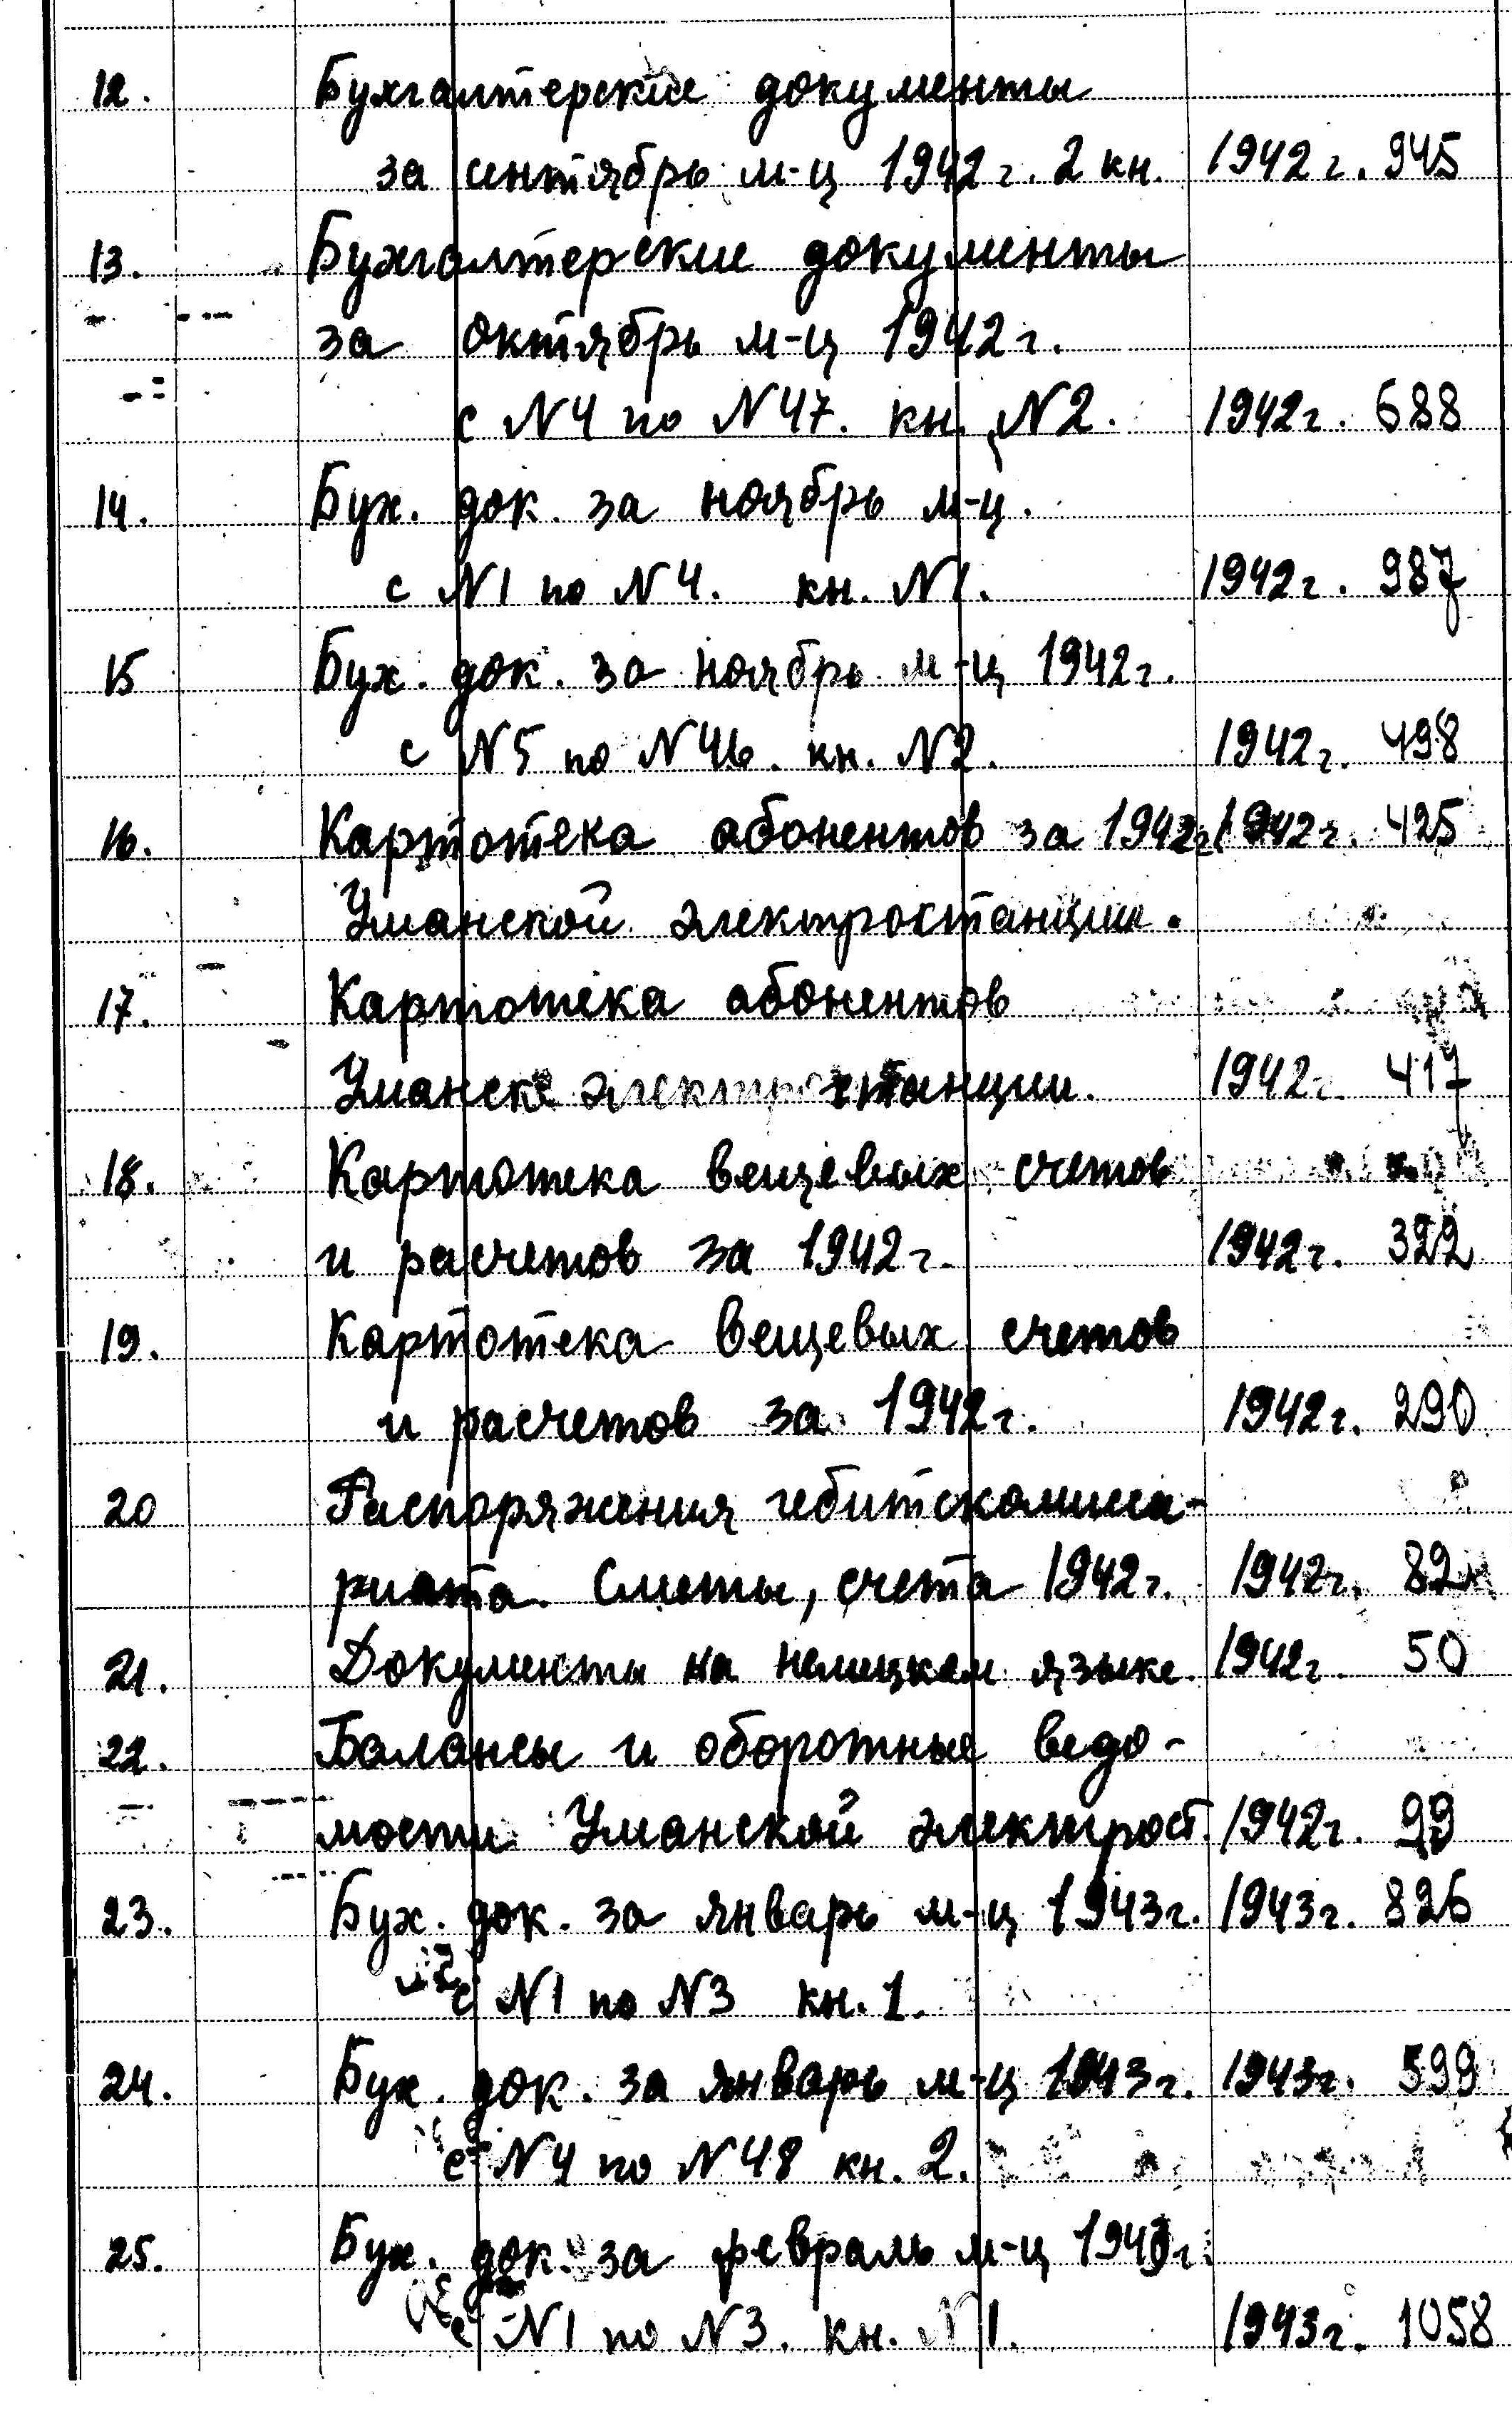 12. Бухгалтерские документы
за сентябрь м-ц 1942 г. 2 кн. 1942 г. 945
13. Бухгалтерские документы
за октябрь м-ц 1942 г.
с N4 по N47. кн. N2. 1942 г. 688
14. Бух. док. за ноябрь м-ц.
с N1 по N4. кн. N1. 1942 г. 987
15 Бух. док. за ноябрь м-ц 1942 г.
с N5 по N46. кн. N2. 1942 г. 498
16. Картотека абонентов за 1942 г 1942 г. 425
Уманской электростанции.
17. Картотека абонентов
Уманске электростанции. 1942 г. 417
18. Картотека вещевых счетов
и расчетов за 1942 г. 1942 г. 322
19. Картотека вещевых счетов
и расчетов за 1942 г. 1942 г. 290
20 Распоряжения гебитскомисса-
риата. Сметы, счета 1942 г. 1942 г. 82
21. Документы на немецком языке. 1942 г. 50
22. Балансы и оборотные ведо-
мости Уманской электрост. 1942 г. 99
23. Бух. док. за январь м-ц 1943 г. 1943 г. 826
с N1 по N3 кн. 1.
24. Бух. док. за январь м-ц 1943 г. 1943 г. 599
с N4 по N48 кн. 2.
25. Бух. док. за февраль м-ц 1943 г.
с N1 по N3. кн. N1. 1943 г. 1058